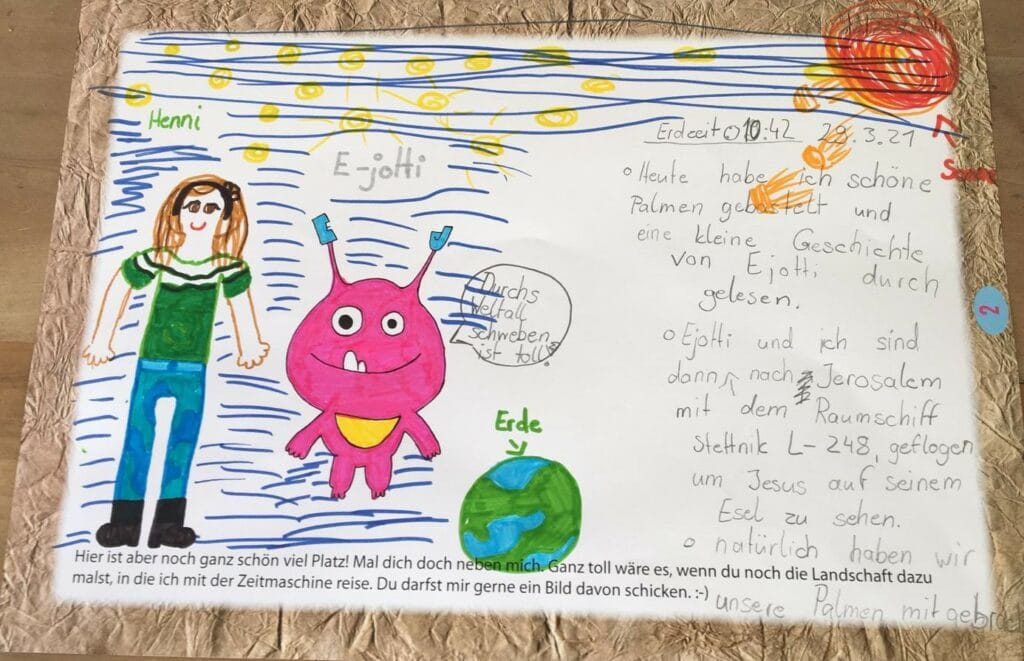 Henni
E-jotti
E
J
Durchs
Weltall
schweben
ist toll!
Erde
Erdzeit 10:42 29.3.21
Sonne
Heute habe ich schöne
Palmen gebastelt und
eine kleine Geschichte
von Ejotti durch
gelesen.
Ejotti und ich sind
dann nach Jerosalem
mit dem Raumschiff
Stettnik L-248, geflogen
um Jesus auf seinem
Esel zu sehen.
natürlich haben wir
unsere Palmen mitgebra
2
Hier ist aber noch ganz schön viel Platz! Mal dich doch neben mich. Ganz toll wäre es, wenn du noch die Landschaft dazu
malst, in die ich mit der Zeitmaschine reise. Du darfst mir gerne ein Bild davon schicken. :-)